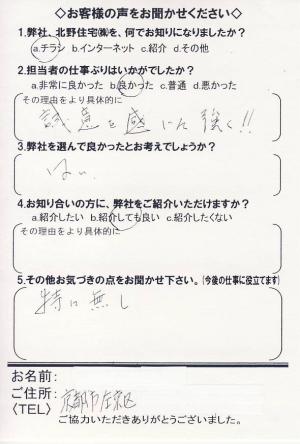 ◇お客様の声をお聞かせください◇
1.弊社、北野住宅㈱を、何でお知りになりましたか?
a.チラシ b.インターネット c.紹介 d.その他
2.担当者の仕事ぶりはいかがでしたか?
a.非常に良かった b.良かった c.普通 d.悪かった
その理由をより具体的に
誠意を感じた 強く!!
3.弊社を選んで良かったとお考えでしょうか?
はい
4.お知り合いの方に、弊社をご紹介いただけますか?
a.紹介したい b.紹介しても良い c.紹介したくない
その理由をより具体的に
5.その他お気づきの点をお聞かせ下さい。(今後の仕事に役立てます)
特に無し
お名前:
ご住所: 京都市左京区
〈TEL〉
ご協力いただきありがとうございました。